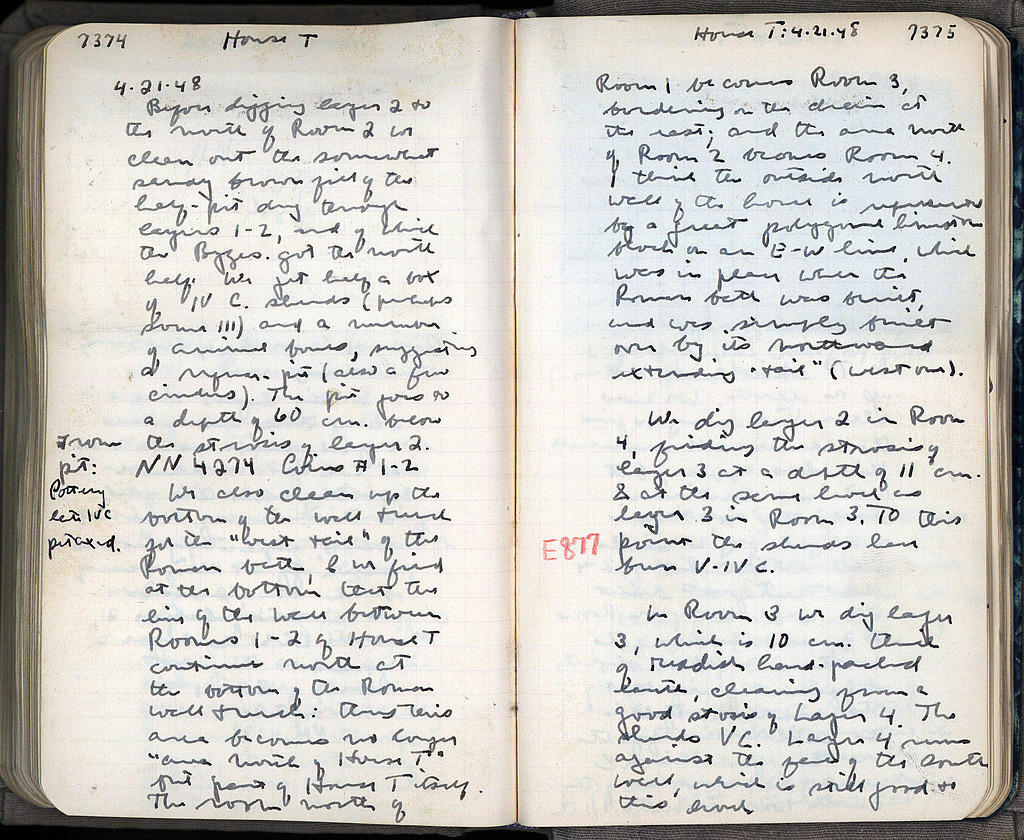 7374 House T
4.21.48
Before digging layer 2 to
the north of Room 2 we
clean out the somewhat
sandy brown fill of the
half-pit dug through
layers 1-2, and of which
the Byzes. got the north
half. We get half a box
of IV C. sherds (perhaps
some III) and a number
of animal bones, suggesting
a pit (also a few
cinders). The pit goes to
a depth of 60 cm. below
the strosis of layer 2.
From
pit: NN 4274 Coins # 1-2
Pottery
late IV C
pit axed.
We also clean up the
bottom of the wall trench
for the "west tail" of the
Roman bath, & we find
at the bottom that the
line of the wall between
Rooms 1-2 of House T
continues north at
the bottom of the Roman
wall trench: thus this
area becomes no longer
"area north of House T"
but part of House T itself.
The room north of
House T: 4.21.48 7375
Room 1 becomes Room 3,
bordering on the drain at
the east; and the area north
of Room 2 becomes Room 4.
I think the outside north
wall of the house is represented
by a great polygonal limestone
block on an E-W line, which
was in place when the
Roman bath was built,
and was simply built
over by its northward
extending "tail" (west one).
We dig layer 2 in Room
4, finding the strosis of
layer 3 at a depth of 11 cm.
& at the same level as
layer 3 in Room 3. To this
point the sherds have
been V-IV C.
E877
In Room 3 we dig layer
3, which is 10 cm. thick
of reddish hard-packed
earth, cleaning from a
good strosis of Layer 4. The
sherds V C. Layer 4 runs
against the face of the south
wall, which is still good to
this level